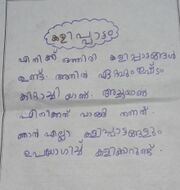 കളിപ്പാട്ടം
എനിക്ക് ഒത്തിരി കളിപ്പാട്ടങ്ങൾ
ഉണ്ട്. അതിൽ ഏറ്റവും ഇഷ്ടം
യാണ്. അച്ഛനാണ്
എനിക്കത് വാങ്ങി തന്നത്.
ഞാൻ എല്ലാ കളിപ്പാട്ടങ്ങളും
ഉപയോഗിച്ച് കളിക്കാറുണ്ട്.